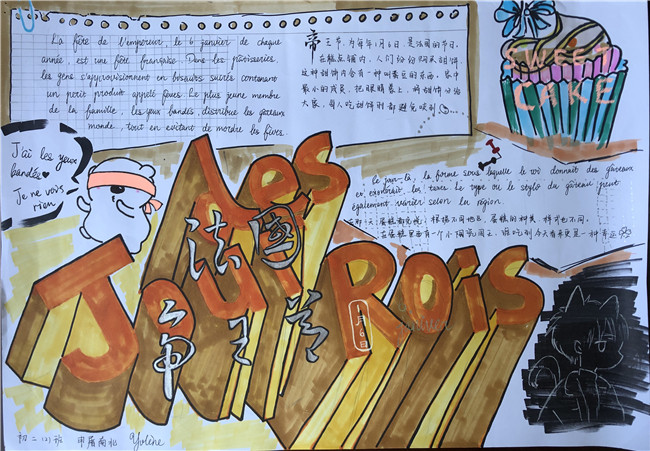 La fête de l'empereur, le 6 janvier de chaque
année, est une fête française. Dans les pâtisseries,
les gens s'approvisionnent en biscuits sucrés contenant
un petit produit appelé fèves. Le plus jeune membre
de la famille, les yeux bandés, distribue les gâteaux
monde, tout en évitant de mordre les fèves.
帝王节,为每年1月6日,是法国的节日,
在糕点铺内,人们纷纷购买甜饼,
这种甜饼内含有一种叫蚕豆的东西,家中
最小的成员,把眼睛蒙上,将甜饼分给
大家,每人吃甜饼时都避免咬到
SWEET
CAKE
J'ai les yeux
bandés
Je ne vois
rien
?
Ce jour-là, la forme sous laquelle le roi donnait des gâteaux
le type ou le style du gâteau peut
également varier selon la région.
根据不同地区,蛋糕的种类,样式也不同。
Jour des Rois
法国
帝王节
1月6日
janvier
初二(2)班
Yolène